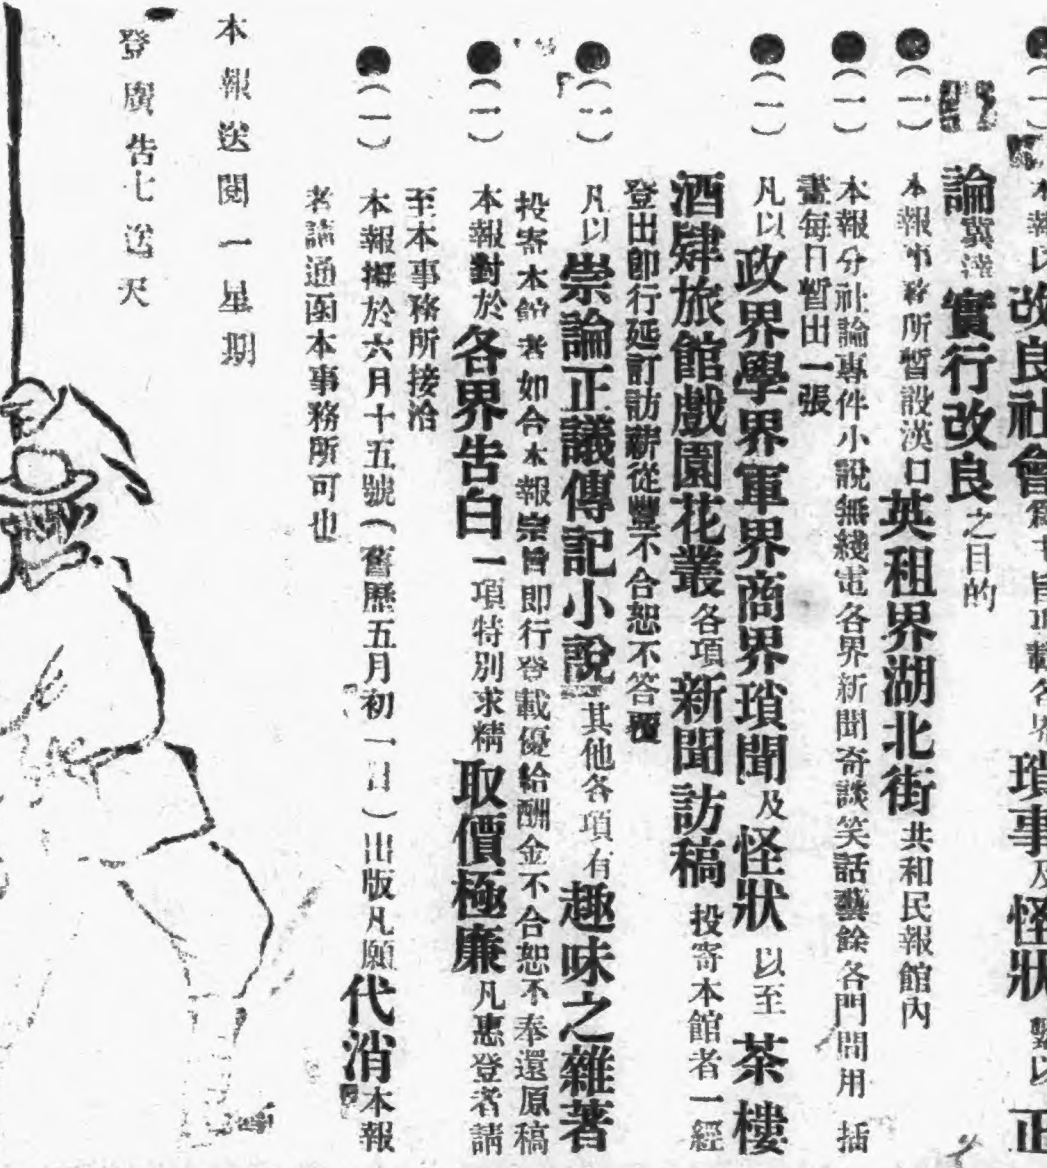 ●(一)本報以改良社會爲主旨專載各界瑣事及怪狀繫以正
論冀達實行改良之目的
●(一)本報事務所暫設漢口英租界湖北街共和民報館內
●(一)本報分社論專件小說無綫電各界新聞奇談笑話藝餘各門間用插
畫每日暫出一張
●(一)凡以政界學界軍界商界瑣聞及怪狀以至茶樓
酒肆旅館戲園花叢各項新聞訪稿投寄本館者一經
登出即行延訂訪薪從豐不合恕不答覆
●(一)凡以崇論正議傳記小說其他各項有趣味之雜著
投寄本館者如合本報宗旨即行登載優給酬金不合恕不奉還原稿
●(一)本報對於各界告白一項特別求精取價極廉凡惠登者請
至本事務所接洽
●(一)本報擬於六月十五號(舊歷五月初一日)出版凡願代消本報
者請通函本事務所可也
本報送閱一星期
登廣告七送天